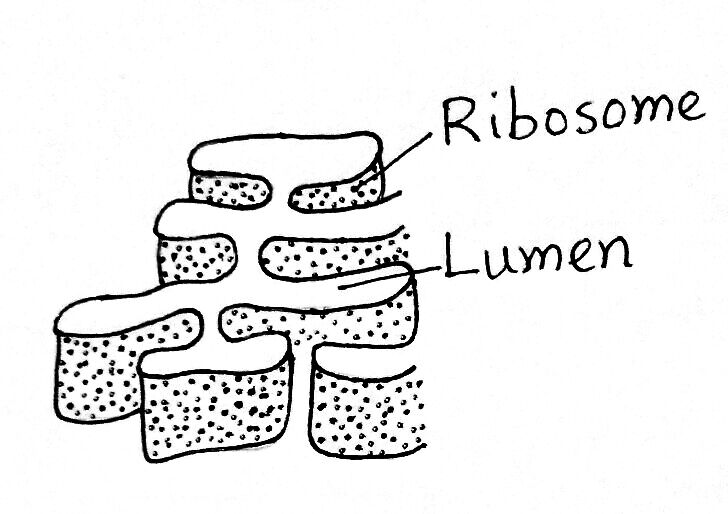 Ribosome
Lumen